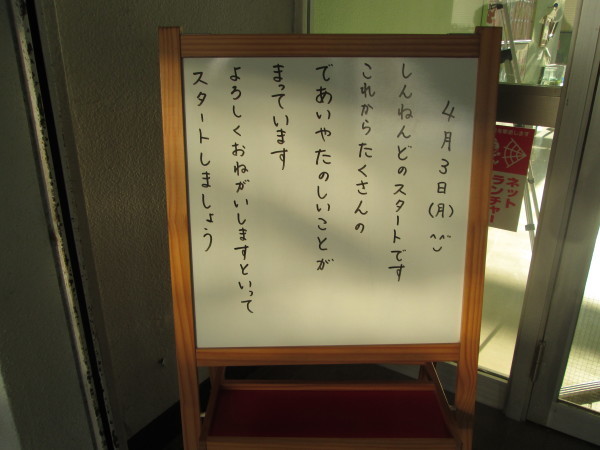 4月3日(月)
しんねんどのスタートです
これからたくさんの
であいやたのしいことが
まっています
よろしくおねがいしますといって
スタートしましょう
ネット
ランチャー